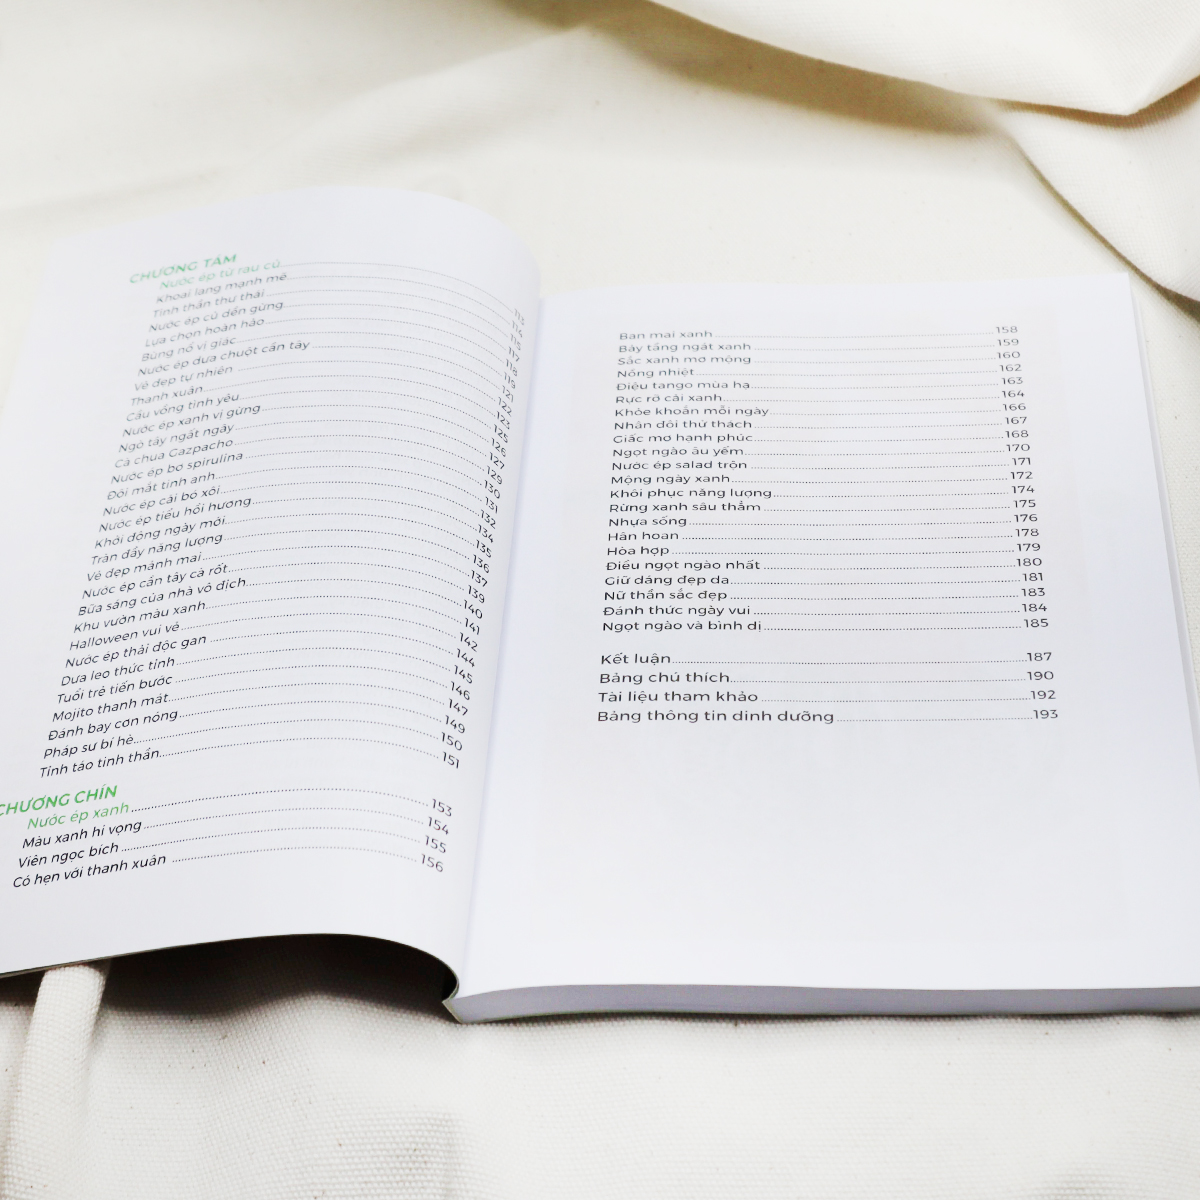 CHƯƠNG TÁM
Nước ép từ rau củ 113
Khoai lang mạnh mẽ 114
Tinh thần thư thái 115
Nước ép củ dền gừng 117
Lựa chọn hoàn hảo 118
Bùng nổ vị giác 119
Nước ép dưa chuột cần tây 121
Vẻ đẹp tự nhiên 122
Thanh xuân 123
Cầu vồng tình yêu 125
Nước ép xanh vị gừng 126
Ngò tây ngất ngây 127
Cà chua Gazpacho 129
Nước ép bơ spirulina 130
Đôi mắt tinh anh 131
Nước ép cải bó xôi 132
Nước ép tiểu hồi hương 134
Khởi động ngày mới 135
Tràn đầy năng lượng 136
Vẻ đẹp mảnh mai 137
Nước ép cần tây cà rốt 139
Bữa sáng của nhà vô địch 140
Khu vườn màu xanh 141
Halloween vui vẻ 142
Nước ép thải độc gan 144
Dưa leo thức tỉnh 145
Tuổi trẻ tiến bước 146
Mojito thanh mát 147
Đánh bay cơn nóng 149
Pháp sư bí hè 150
Tỉnh táo tinh thần 151
CHƯƠNG CHÍN
Nước ép xanh 153
Màu xanh hi vọng 154
Viên ngọc bích 155
Có hẹn với thanh xuân 156
Ban mai xanh 158
Bảy tầng ngát xanh 159
Sắc xanh mơ mộng 160
Nồng nhiệt 162
Điệu tango mùa hạ 163
Rực rỡ cải xanh 164
Khỏe khoắn mỗi ngày 166
Nhân đôi thử thách 167
Giấc mơ hạnh phúc 168
Ngọt ngào âu yếm 170
Nước ép salad trộn 171
Mộng ngày xanh 172
Khôi phục năng lượng 174
Rừng xanh sâu thẳm 175
Nhựa sống 176
Hân hoan 178
Hòa hợp 179
Điều ngọt ngào nhất 180
Giữ dáng đẹp da 181
Nữ thần sắc đẹp 183
Đánh thức ngày vui 184
Ngọt ngào và bình dị 185
Kết luận 187
Bảng chú thích 190
Tài liệu tham khảo 192
Bảng thông tin dinh dưỡng 193